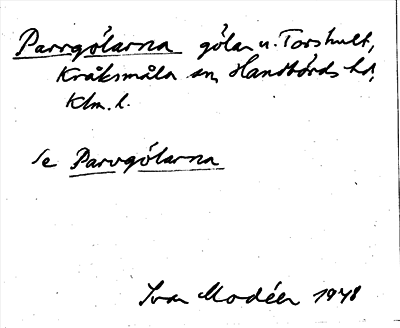 Parrgölarna gölar n. Torshult,
Kråksmåla sn, Handbörds hd,
Klm. l.
se Parvgölarna
Ivar Modéer 1948